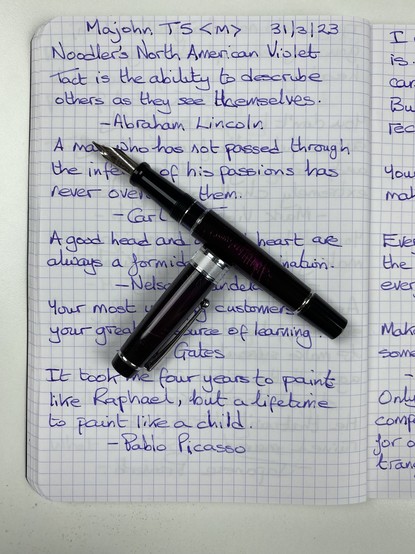 Majohn T5 <M> 31/3/23
Noodler's North American Violet
Tact is the ability to describe
others as they see themselves.
-Abraham Lincoln
A man who has not passed through
the infe of his passions has
never over them.
-Carl
A good head and a heart are
always a formid ination.
-Nelso andela
Your most u customers
your great ource of learning.
Gates
It took me four years to paint
like Raphael, but a lifetime
to paint like a child.
-Pablo Picasso
I
is
car
Bu
Tec
You
mak
Eve
the
ever
Make
some
-
Only
comp
for o
tran